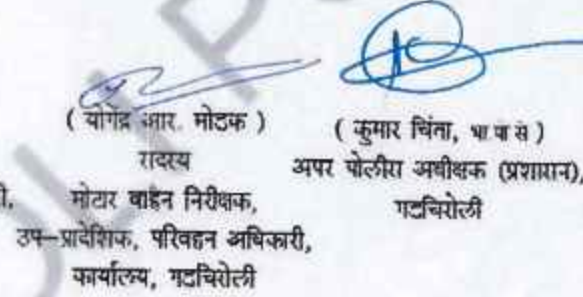 ( योगेंद्र आर. मोडक )
सदस्य
मोटार वाहन निरीक्षक,
उप-प्रादेशिक, परिवहन अधिकारी,
कार्यालय, गडचिरोली
( कुमार चिंता, भा पो से )
अपर पोलीस अधीक्षक (प्रशासन),
गडचिरोली